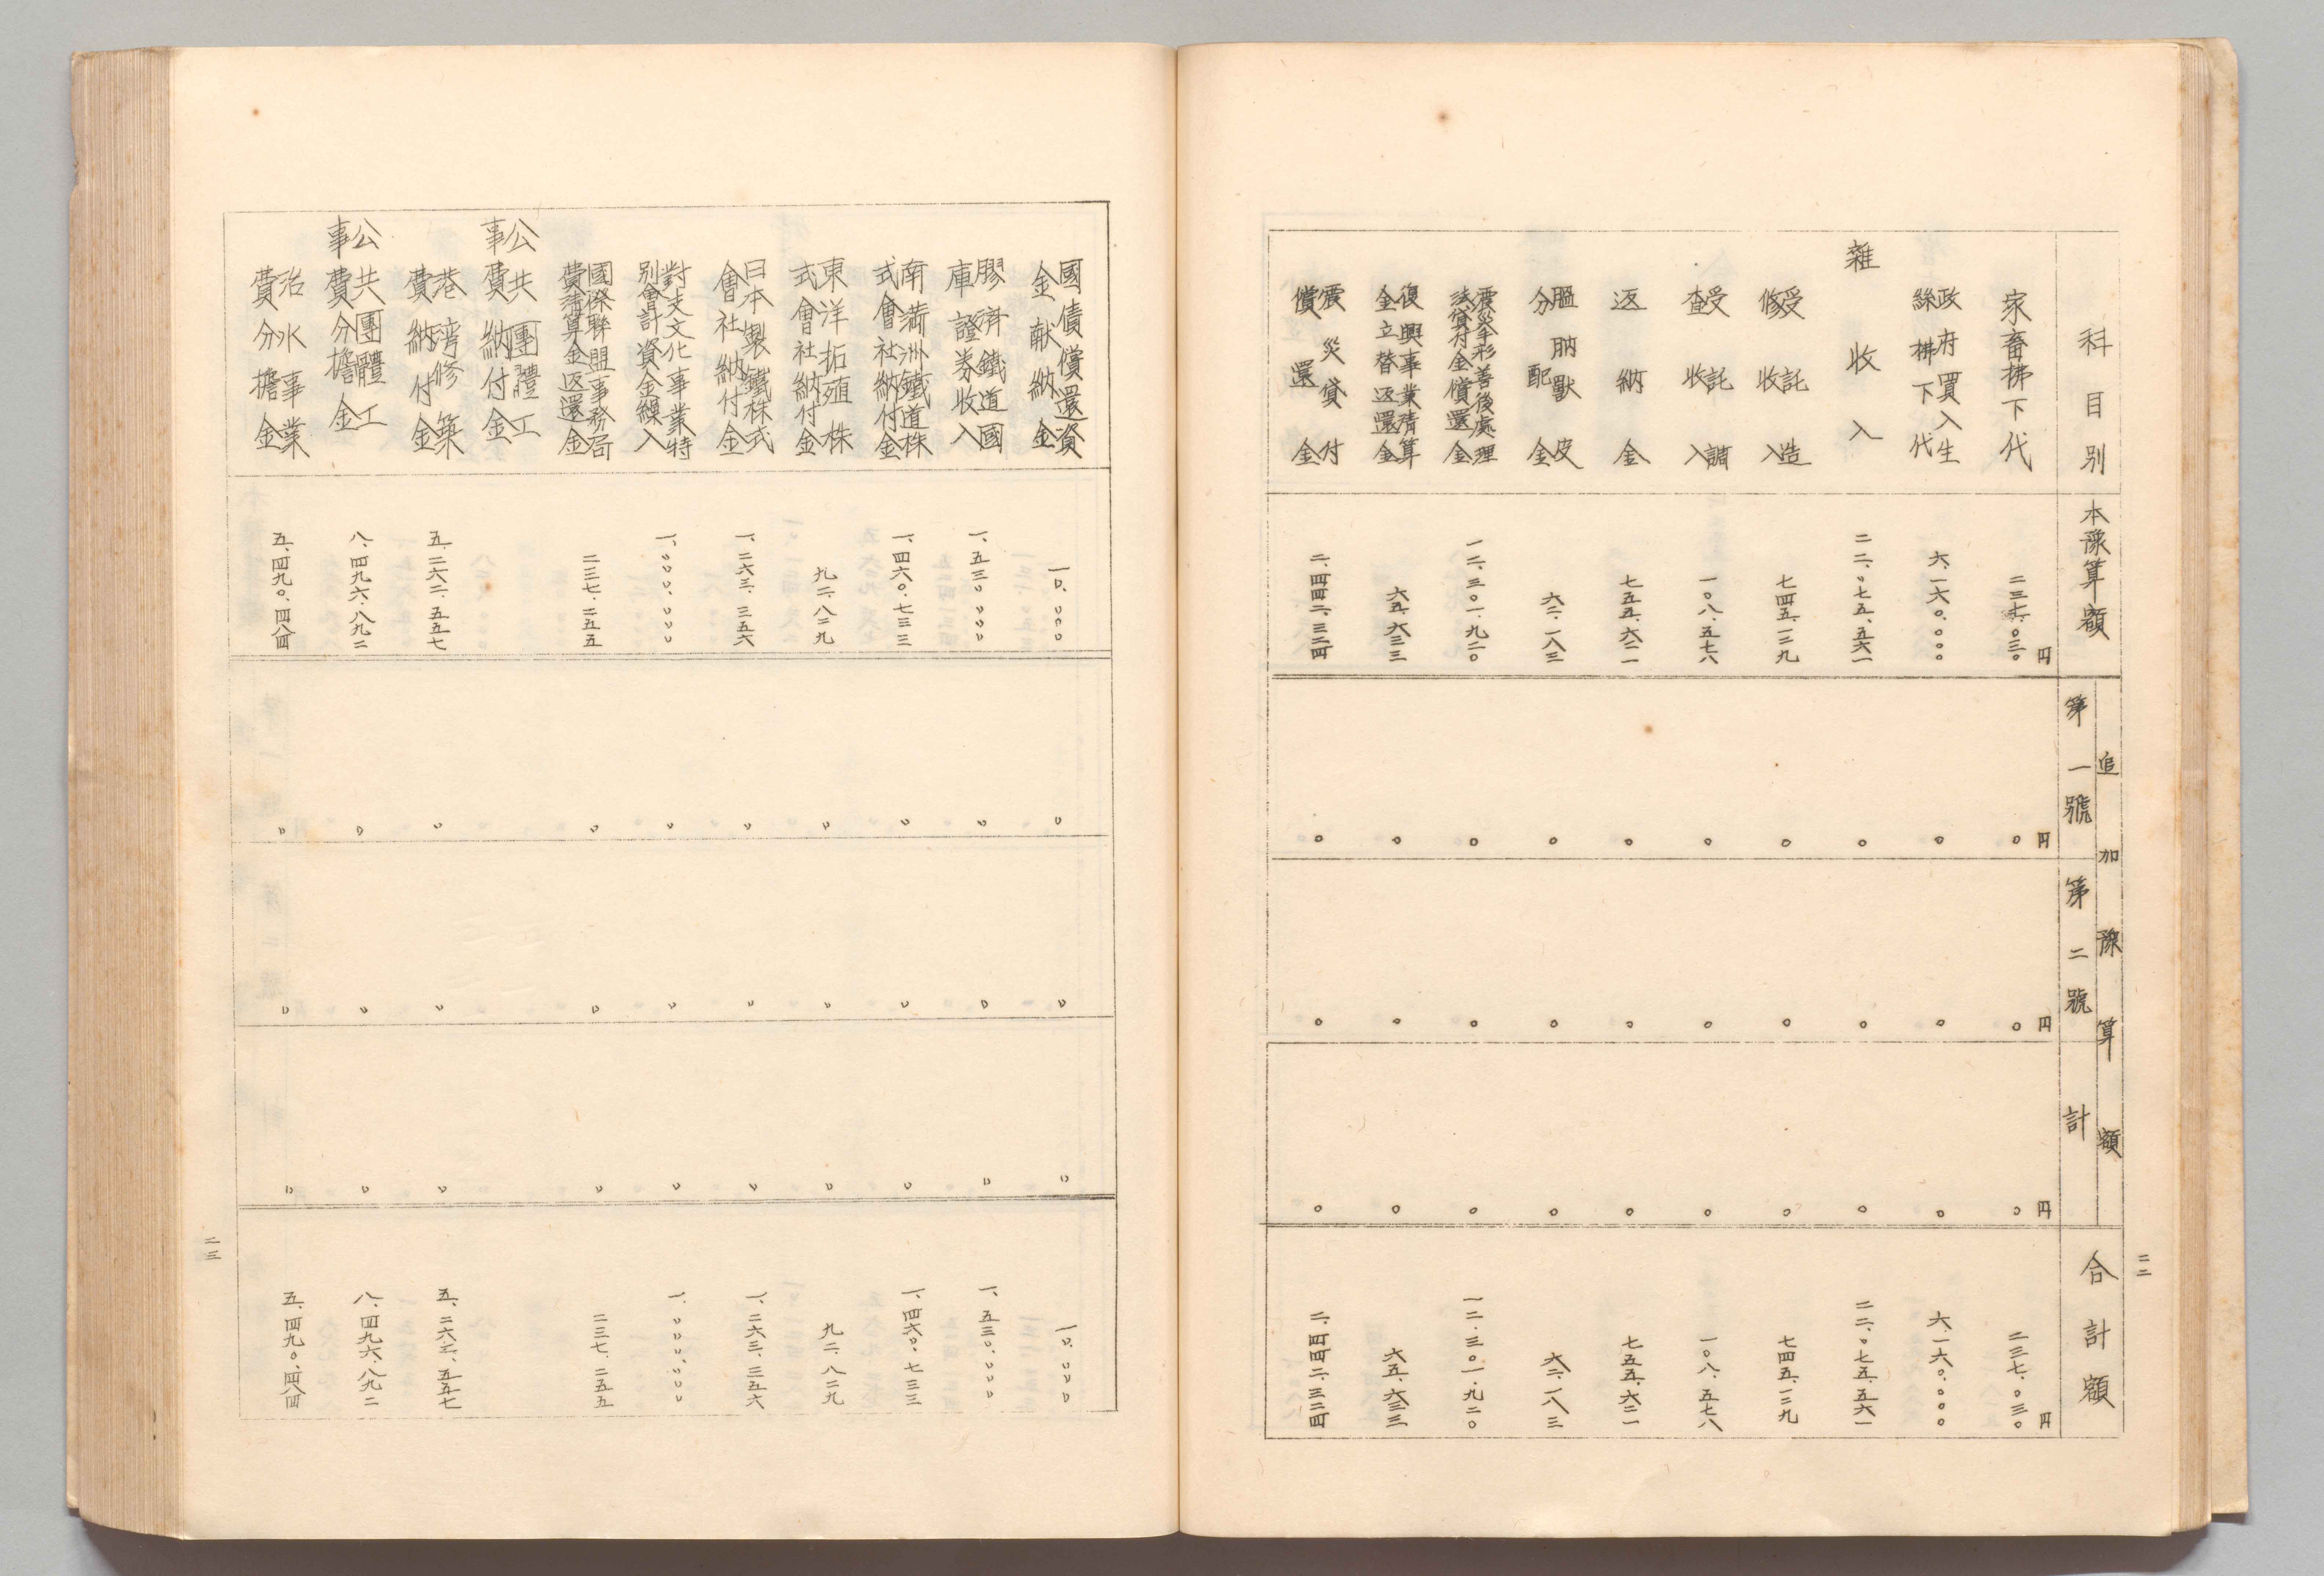 科目別
本豫算額
追加豫算額
第一號
第二號
計
合計額
家畜拂下代
二三七.〇三〇円
〇円
〇円
〇円
二三七.〇三〇円
政府買入生
絲拂下代
六.一六〇.〇〇〇
〇
〇
〇
六.一六〇.〇〇〇
雜收入
二二.〇七五.五六一
〇
〇
〇
二二.〇七五.五六一
受託造
修收入
七四五.一二九
〇
〇
〇
七四五.一二九
受託調
査收入
一〇八.五七八
〇
〇
〇
一〇八.五七八
返納金
七五五.六二一
〇
〇
〇
七五五.六二一
膃肭獸皮
分配金
六二.一八三
〇
〇
〇
六二.一八三
震災手形善後處理
法貸付金償還金
一二.三〇一.九二〇
〇
〇
〇
一二.三〇一.九二〇
復興事業淸算
金立替返還金
六五.六三三
〇
〇
〇
六五.六三三
震災貸付
償還金
二.四四二.三二四
〇
〇
〇
二.四四二.三二四
二二
國債償還資
金献納金
一〇.〇〇〇
〇
〇
〇
一〇.〇〇〇
膠濟鐵道國
庫證券收入
一.五三〇.〇〇〇
〇
〇
〇
一.五三〇.〇〇〇
南滿洲鐵道株
式會社納付金
一.四六〇.七三三
〇
〇
〇
一.四六〇.七三三
東洋拓殖株
式會社納付金
九二.八二九
〇
〇
〇
九二.八二九
日本製鐵株式
會社納付金
一.二六三.三五六
〇
〇
〇
一.二六三.三五六
對支文化事業特
別會計資金繰入
一.〇〇〇.〇〇〇
〇
〇
〇
一.〇〇〇.〇〇〇
國際聯盟事務局
費淸算金返還金
二三七.二五五
〇
〇
〇
二三七.二五五
公共團體工
事費納付金
港灣修築
費納付金
五.二六二.五五七
〇
〇
〇
五.二六二.五五七
公共團體工
事費分擔金
八.四九六.八九二
〇
〇
〇
八.四九六.八九二
治水事業
費分擔金
五.四九〇.四八四
〇
〇
〇
五.四九〇.四八四
二三